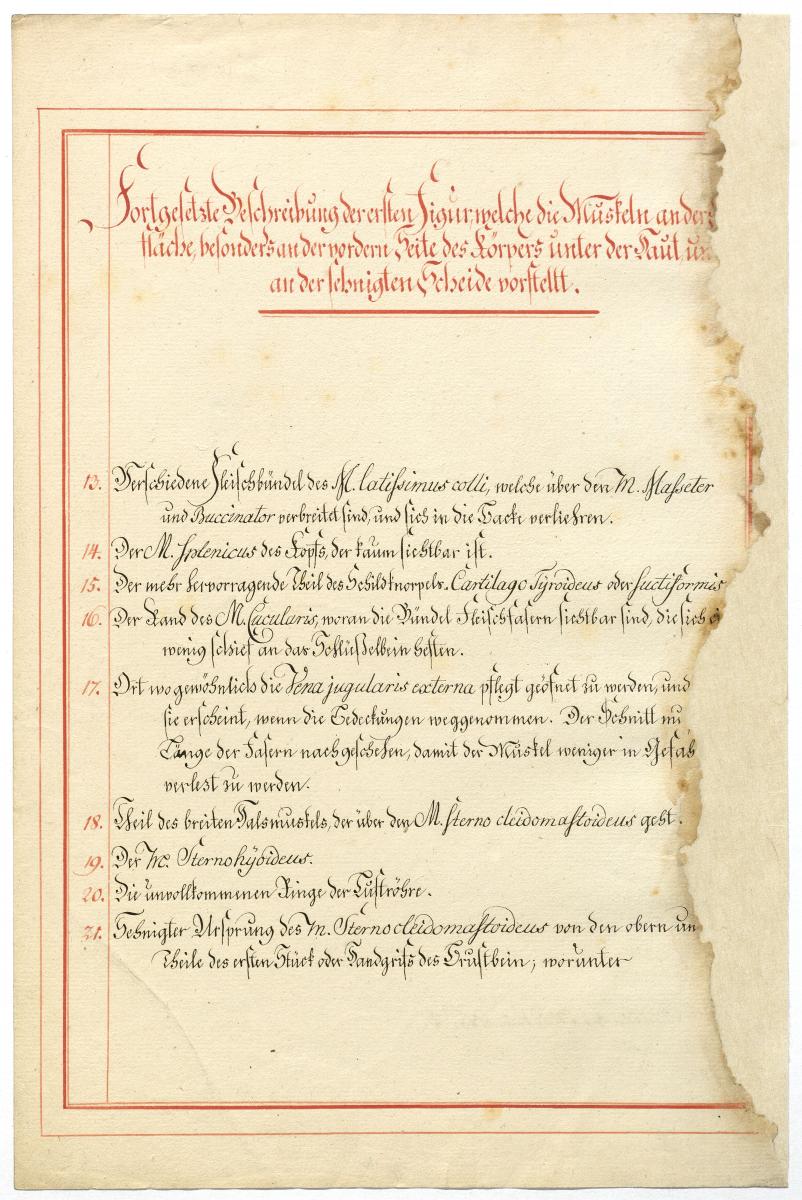 Fortgesetzte Beschreibung der ersten Figur, welche die Muskeln an der
fläche, besonders an der vordern Seite des Körpers unter der Haut, un
an der sehnigten Scheide vorstellt.
13. Verschiedene Fleischbündel des M. latissimus colli, welche über den M. Masseter
und Buccinator verbreitet sind, und sich in die Backe verliehren.
14. Der M. Splenicus des Kopfs, der kaum sichtbar ist.
15. Der mehr hervorragende Theil des Schildknorpels. Cartilago Tyroideus oder suctiformis
16. Der Rand des M. Cucularis, woran die Bündel Fleischfasern sichtbar sind, die sich
wenig schief an das Schlüßelbein heften.
17. Ort wo gewöhnlich die Vena jugularis externa pflegt geöfnet zu werden, und
sie erscheint, wenn die Bedeckungen weggenommen. Der Schnitt mu
Länge der Fasern nach geschehen, damit der Muskel weniger in Gefah
verlest zu werden.
18. Theil des breiten Halsmuskels, der über den M. sterno cleidomastoideus geht.
19. Der M. Sternohÿoideus.
20. Die unvollkommenen Ringe der Luftröhre.
21. Sehnigter Ursprung des M. Sternocleidomastoideus von den obern un
Theile des ersten Stück oder Handgrifs des Brustbein; worunter